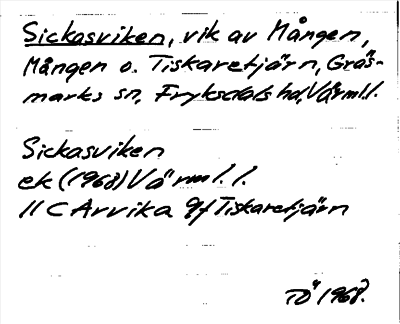 Sickasviken, vik av Mången,
Mången o. Tiskaretjärn, Gräs-
marks sn, Fryksdals hd, Värml.
Sickasviken
ek (1968) Värml. l.
11 C Arvika 9f Tiskaretjärn
TÖ 1968.